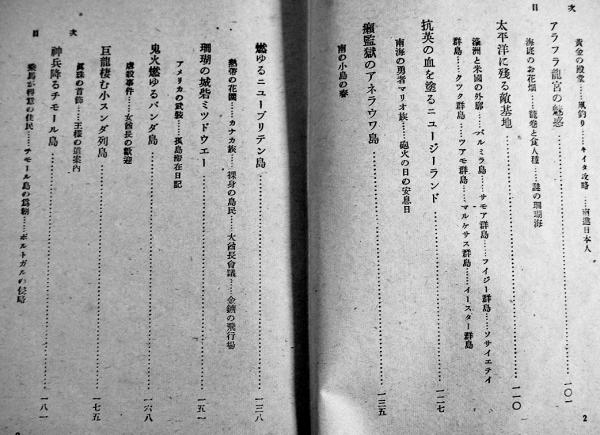 目次
黄金の殿堂……凧釣り……キイタ攻略……南進日本人
アラフラ龍宮の魅惑……一〇一
海底のお花畑……龍巻と食人種……謎の珊瑚海
太平洋に残る敵基地……一一〇
濠洲と米國の外廓……パルミラ島……サモア群島……フイジー群島……ソサイエテイ
群島……クツク群島……ツアモ群島……マルケサス群島……イースター群島
抗英の血を塗るニュージーランド……一二七
南海の勇者マリオ族……砲火の日の安息日
癩監獄のアネラウワ島……一三五
南の小島の春
2
燃ゆるニューブリテン島……一三八
熱帶の花園……カナカ族……裸身の島民……大酋長會議……金鑛の飛行場
珊瑚の城砦ミツドウエー……一五一
アメリカの武裝……孤島滯在日記
鬼火燃ゆるバンダ島……一六八
虐殺事件……女酋長の歡迎
巨龍棲む小スンダ列島……一七五
眞珠の首飾……王樣の道案內
神兵降るチモール島……一八一
乘馬が得意の住民……チモール島の爲朝……ポルトガルの侵略
目次